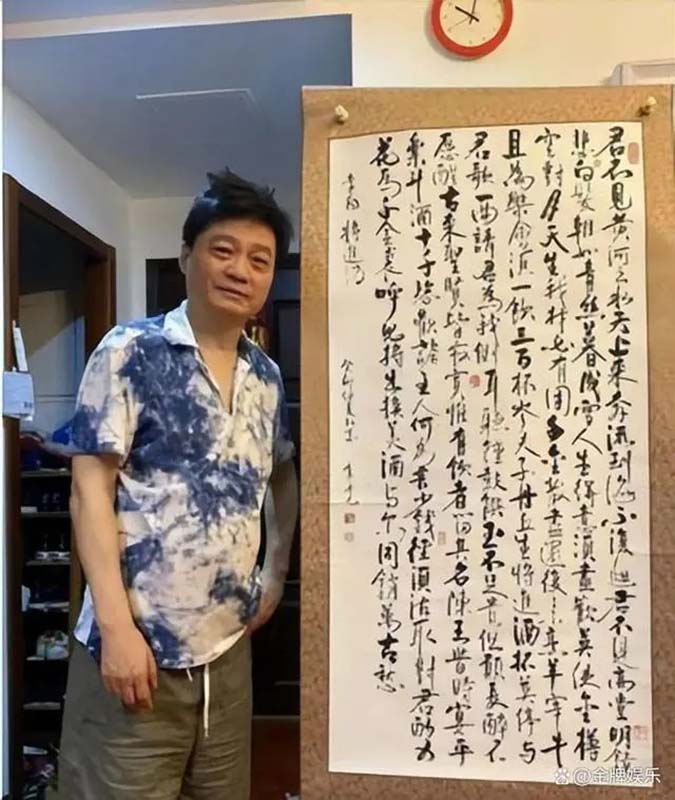 君不見黃河之水天上來奔流到海不復迴君不見高堂明鏡
悲白髮朝如青絲暮成雪人生得意須盡歡莫使金樽
空對月天生我材必有用千金散盡還復來烹羊宰牛
且為樂會須一飲三百杯岑夫子丹丘生將進酒杯莫停與
君歌一曲請君為我側耳聽鐘鼓饌玉不足貴但願長醉不
愿醒古來聖賢皆寂寞惟有飲者留其名陳王昔時宴平
樂斗酒十千恣歡謔主人何為言少錢徑須沽取對君酌五
花馬千金裘呼兒將出換美酒與爾同銷萬古愁
李白將進酒
@金牌娱乐